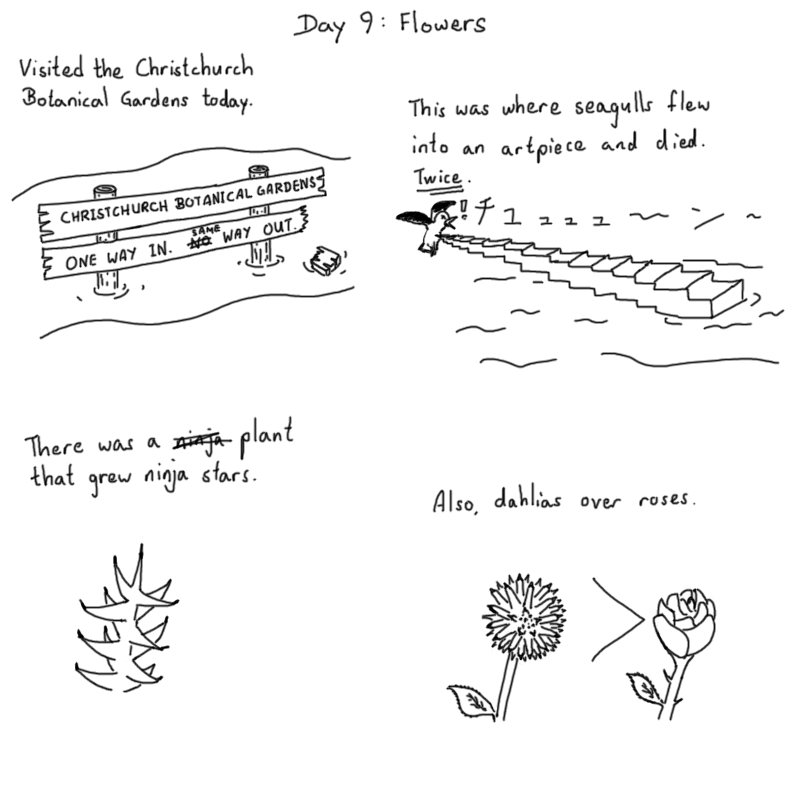 Day 9: Flowers
Visited the Christchurch
Botanical Gardens today.
CHRISTCHURCH BOTANICAL GARDENS
ONE WAY IN. NO SAME WAY OUT.
This was where seagulls flew
into an artpiece and died.
Twice.
!
There was a ninja plant
that grew ninja stars.
Also, dahlias over roses.